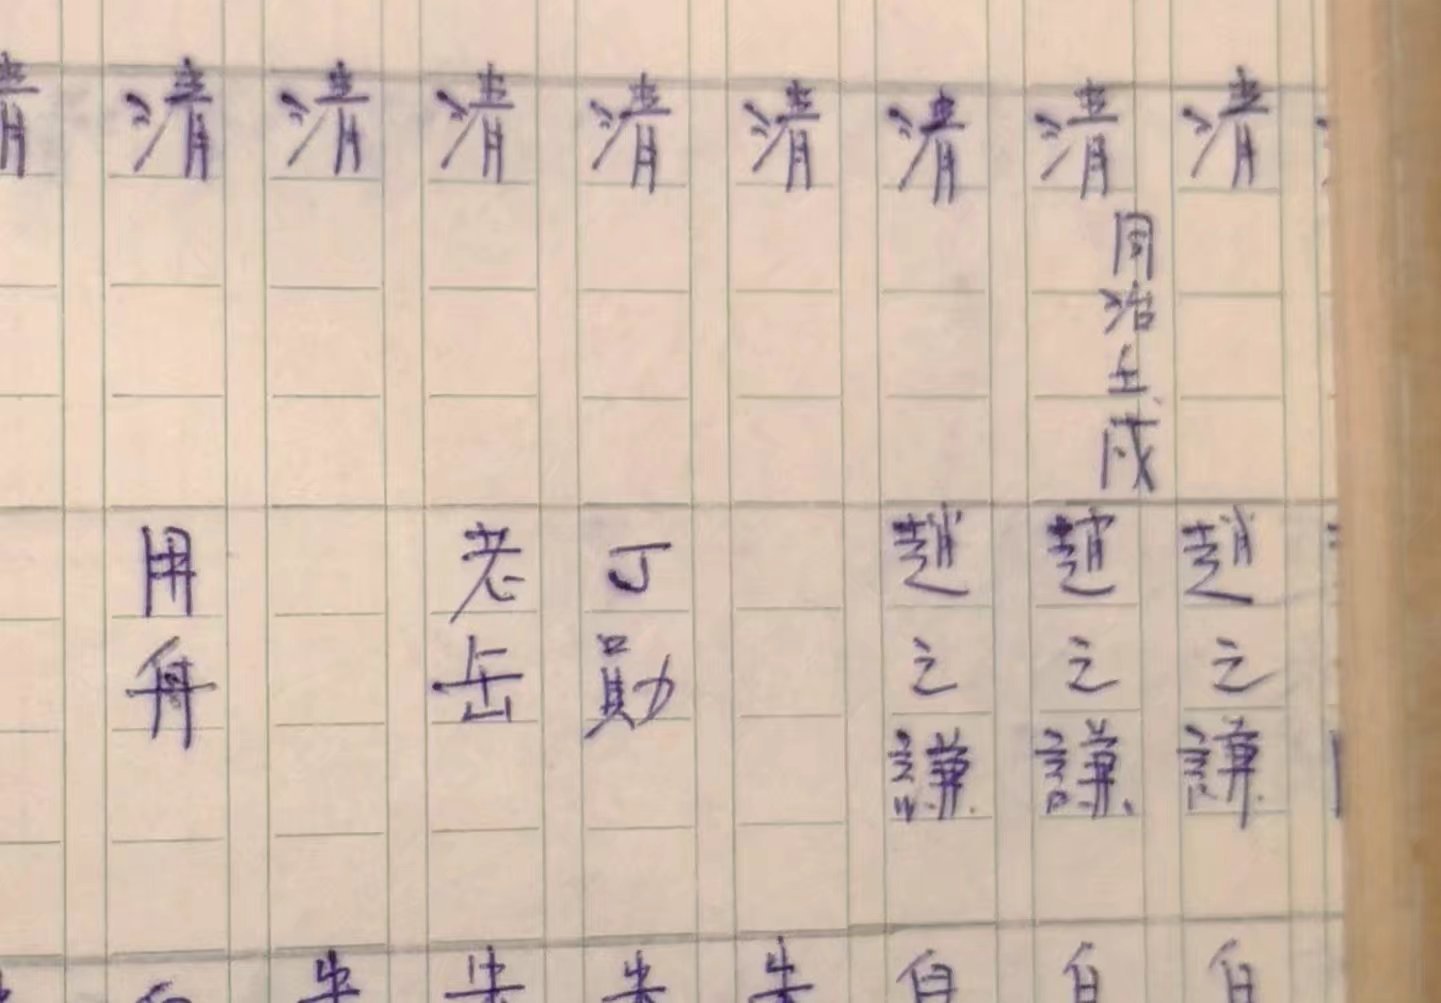 清 趙之謙 白
清 同治壬戌 趙之謙 白
清 趙之謙 白
清 朱
清 丁勛 朱
清 老岳 朱
清 朱
清 用舟 白
清